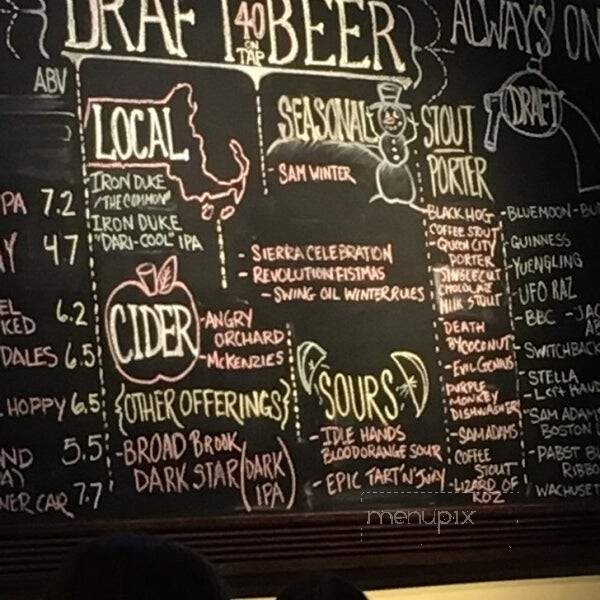 DRAFT BEER
40
ON
TAP
ALWAYS ON
ABV
PA 7.2
Y 4.7
6.2
KED
DALES 6.5
HOPPY 6.5
ND 5.5
A)
NER CAR 7.7
LOCAL
IRON DUKE
"THE COMMON"
IRON DUKE
"DARI-COOL" IPA
SEASONAL
- SAM WINTER
- SIERRA CELEBRATION
- REVOLUTION FISTMAS
- SWING OIL WINTER RULES
CIDER
- ANGRY
ORCHARD
- MCKENZIES
{OTHER OFFERINGS}
- BROAD BROOK
DARK STAR (DARK
IPA)
SOURS
- IDLE HANDS
BLOOD ORANGE SOUR
- EPIC TART 'N' JUICY
STOUT
PORTER
- BLACK HOG
COFFEE STOUT
- QUEEN CITY
PORTER
SINGLECUT
CHOCOLATE
MILK STOUT
DEATH
BY COCONUT
- EVIL GENIUS
PURPLE
MONKEY
DISHWASHER
- SAM ADAMS
COFFEE
STOUT
- LIZARD OF
KOZ
DRAFT
- BLUE MOON - BU
GUINNESS
- YUENGLING
- UFO RAZ
- BBC - JAC
AB
- SWITCHBACK
- STELLA
- LEFT HAND
- SAM ADAMS
BOSTON
- PABST BL
RIBBO
WACHUSET
menupix